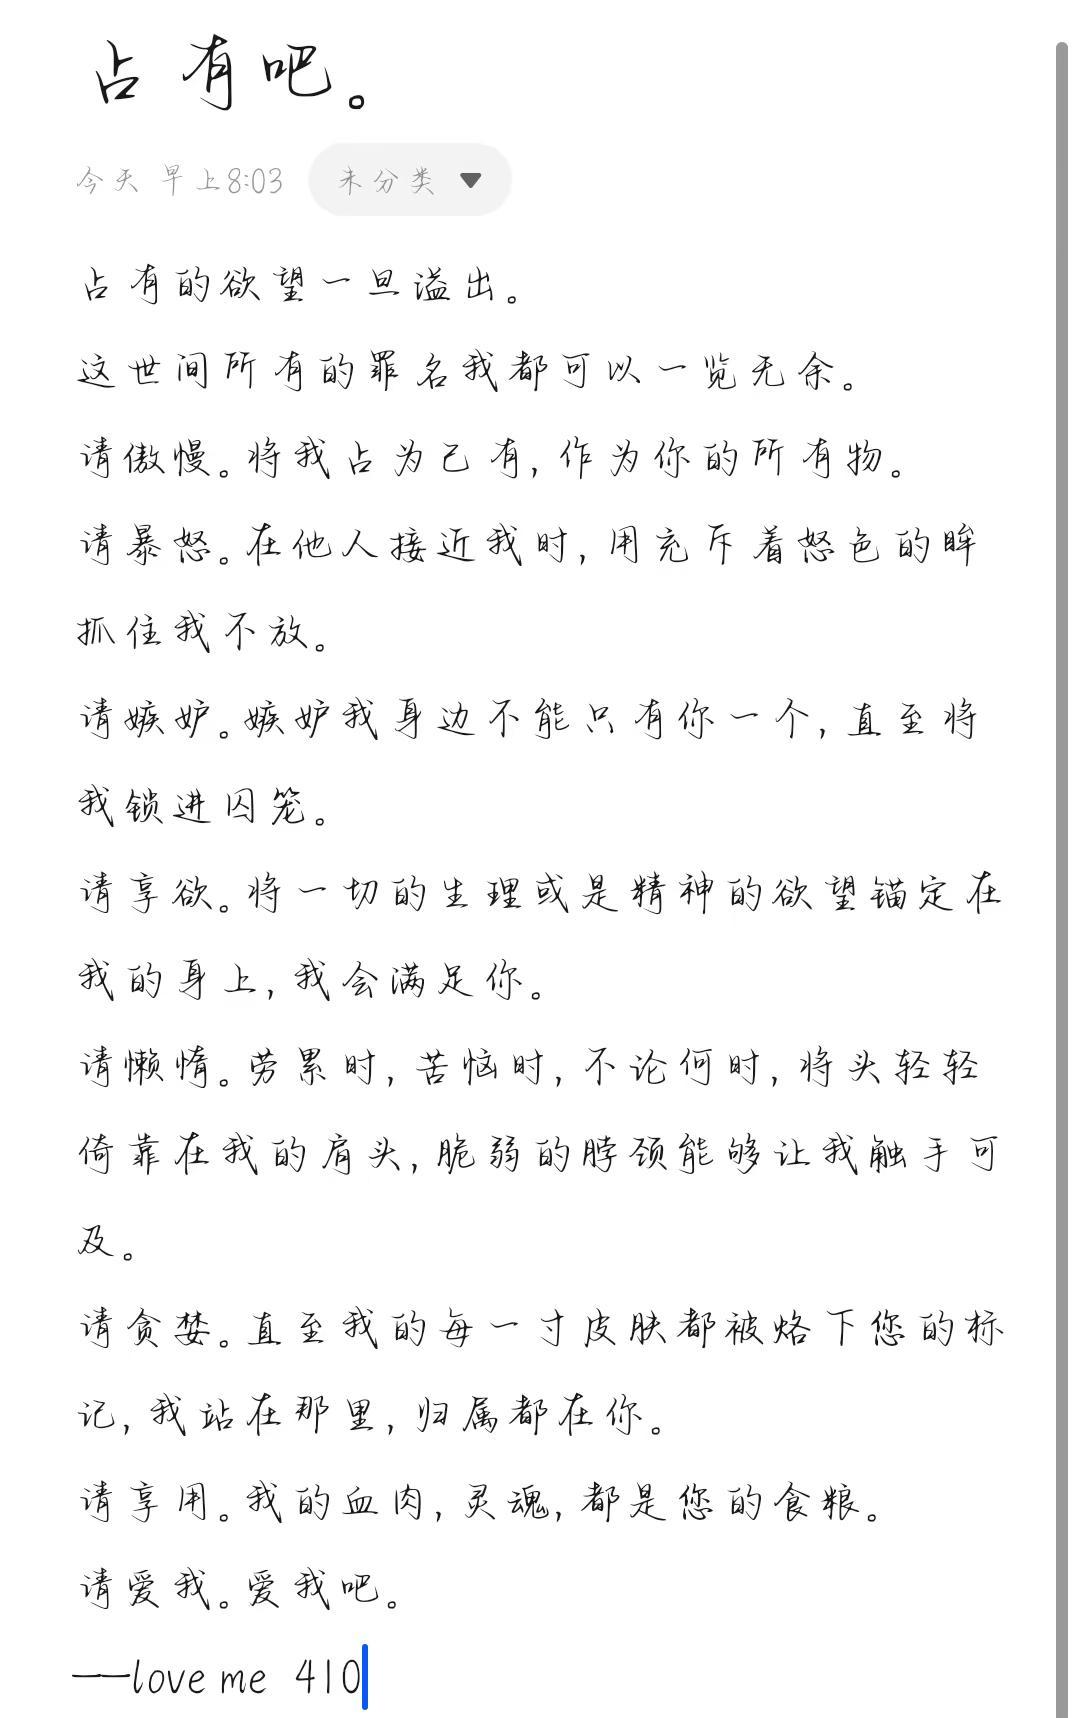 占有吧。
今天 早上8:03 未分类
占有的欲望一旦溢出。
这世间所有的罪名我都可以一览无余。
请傲慢。将我占为己有，作为你的所有物。
请暴怒。在他人接近我时，用充斥着怒色的眸
抓住我不放。
请嫉妒。嫉妒我身边不能只有你一个，直至将
我锁进囚笼。
请享欲。将一切的生理或是精神的欲望锚定在
我的身上，我会满足你。
请懒惰。劳累时，苦恼时，不论何时，将头轻轻
倚靠在我的肩头，脆弱的脖颈能够让我触手可
及。
请贪婪。直至我的每一寸皮肤都被烙下您的标
记，我站在那里，归属都在你。
请享用。我的血肉，灵魂，都是您的食粮。
请爱我。爱我吧。
——love me 410